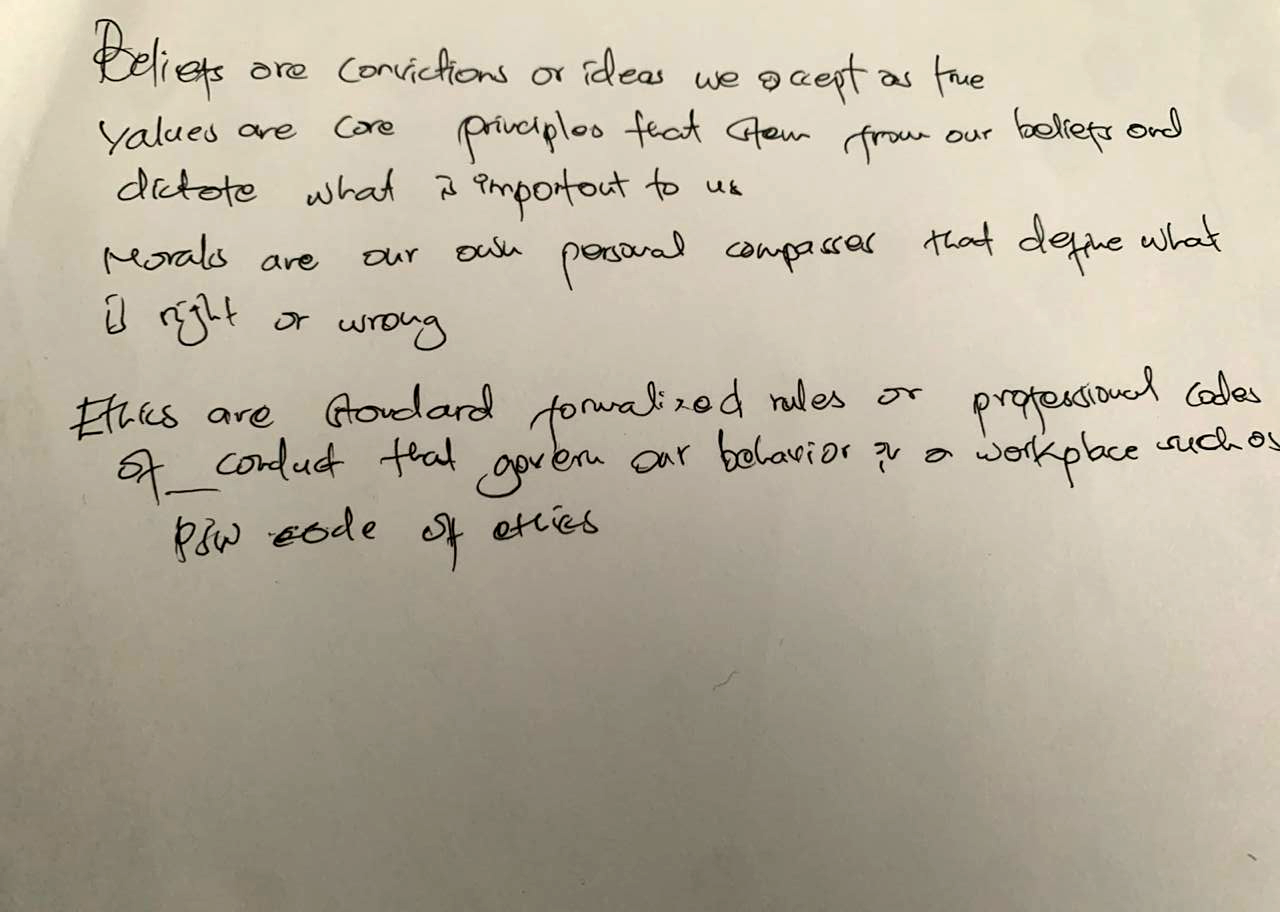 Beliefs are convictions or ideas we accept as true
Values are core principles that stem from our beliefs and
dictate what is important to us
Morals are our own personal compasses that define what
is right or wrong
Ethics are standard formalized rules or professional codes
of conduct that govern our behavior in a workplace such as
PSW code of ethics